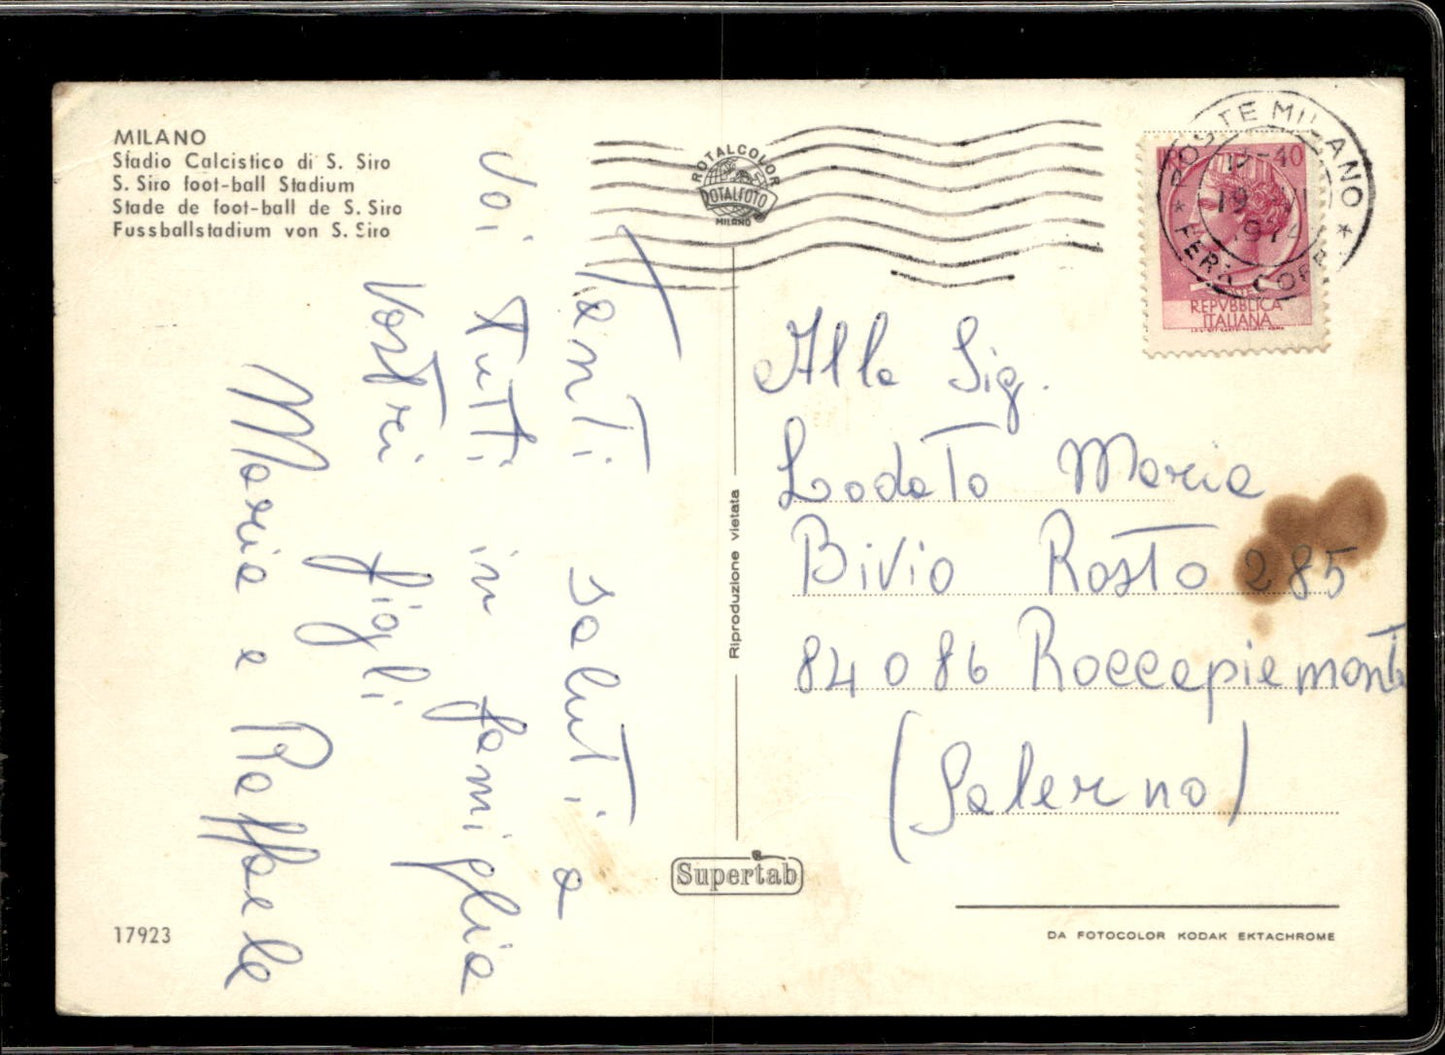 MILANO
Stadio Calcistico di S. Siro
S. Siro foot-ball Stadium
Stade de foot-ball de S. Siro
Fussballstadium von S. Siro
ROTALCOLOR
ROTALFOTO
MILANO
POSTE MILANO
19
FERR. CORR
40
REPVBBLICA
ITALIANA
Tanti saluti a
Voi tutti in famiglia
Vostri figli
Maria e Raffaele
Alla Sig.
Lodato Maria
Bivio Rosto 285
84086 Roccapiemonte
(Salerno)
Riproduzione vietata
Supertab
17923
DA FOTOCOLOR KODAK EKTACHROME